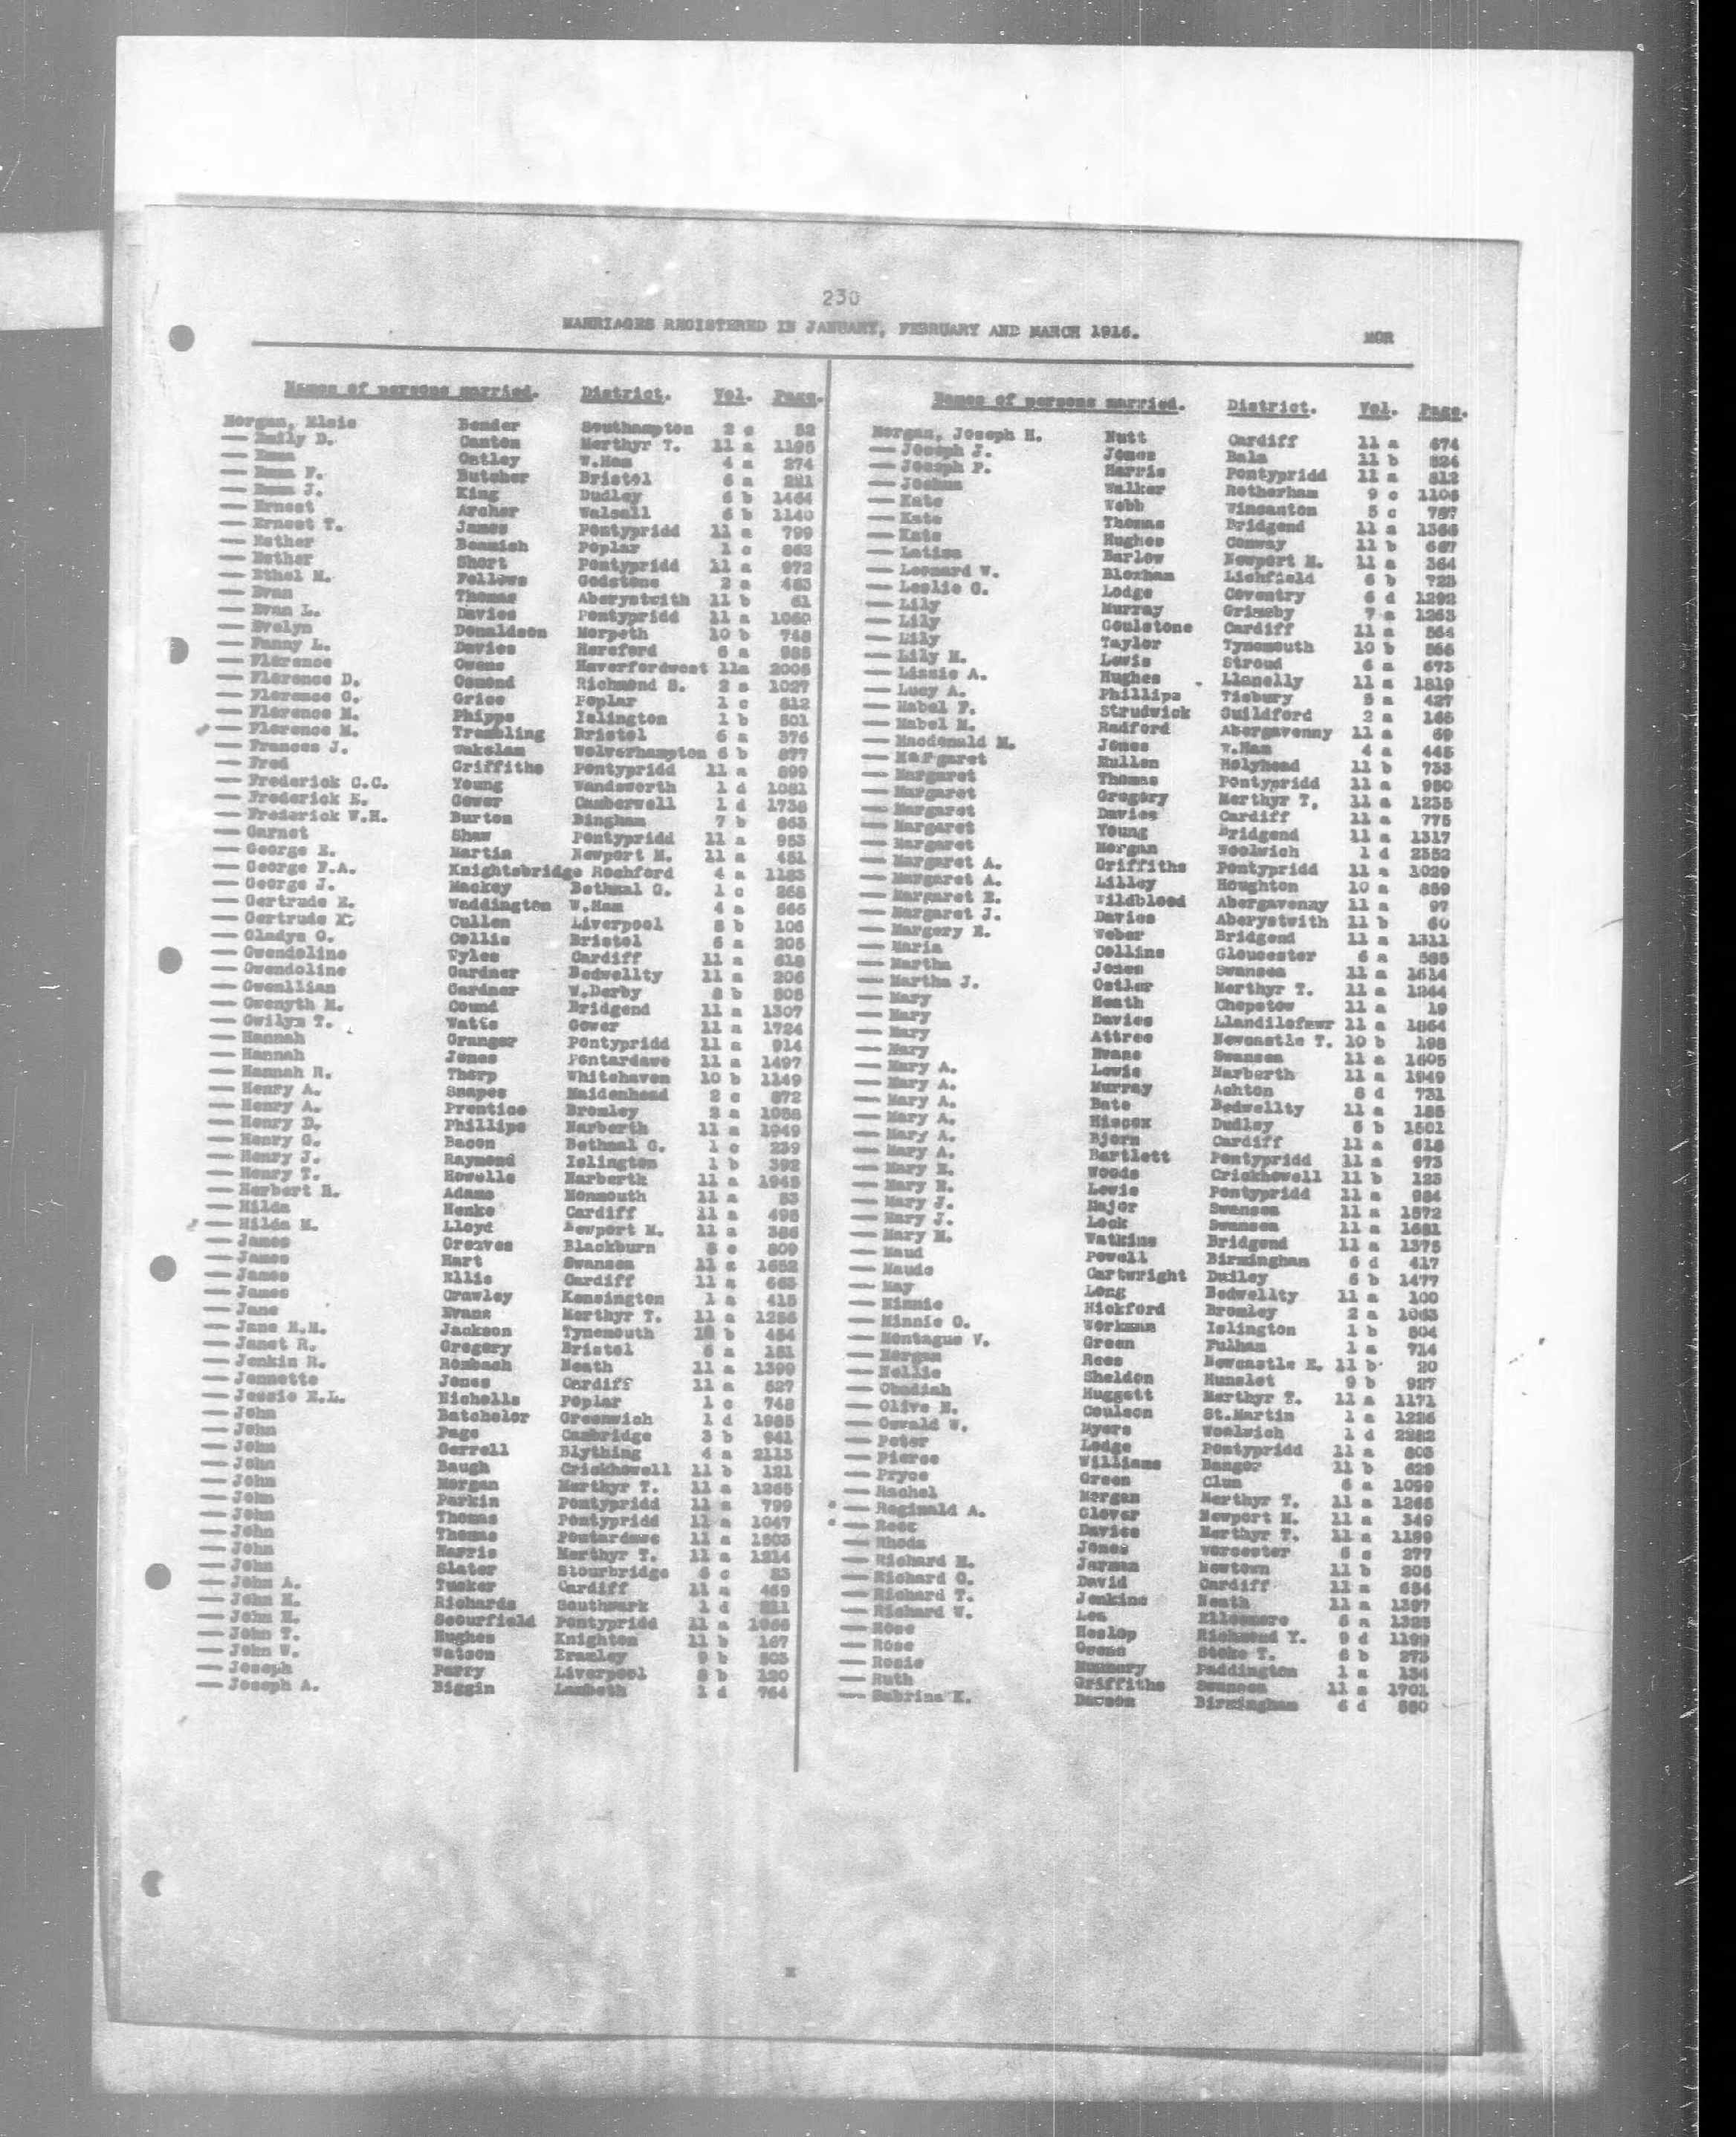 230
MARRIAGES REGISTERED IN JANUARY, FEBRUARY AND MARCH 1916.
MOR
Names of persons married. District. Vol. Page.
Morgan, Elsie Bender Southampton 2 c 52
— Emily D. Canton Merthyr T. 11 a 1195
— Emma Oatley W.Ham 4 a 274
— Emma F. Butcher Bristol 6 a
— Emma J. King Dudley 6 b 1464
— Ernest Archer Walsall 6 b 1140
— Ernest T. James Pontypridd 11 a 799
— Esther Beamish Poplar 1 c 862
— Esther Short Pontypridd 11 a 972
— Ethel M. Fellows Godstone 2 a 463
— Evan Thomas Aberystwith 11 b 61
— Evan L. Davies Pontypridd 11 a 1060
— Evelyn Donaldson Morpeth 10 b 748
— Fanny L. Davies Hereford 6 a 985
— Florence Owens Haverfordwest 11a 2006
— Florence D. Osmond Richmond S. 2 a 1027
— Florence G. Grice Poplar 1 c 812
— Florence M. Phipps Islington 1 b 501
— Florence M. Trembling Bristol 6 a 376
— Frances J. Wakelam Wolverhampton 6 b 877
— Fred Griffiths Pontypridd 11 a 899
— Frederick C.C. Young Wandsworth 1 d 1081
— Frederick E. Gower Camberwell 1 d 1738
— Frederick W.H. Burton Bingham 7 b 863
— Garnet Shaw Pontypridd 11 a 953
— George E. Martin Newport M. 11 a 451
— George F.A. Knightsbridge Rochford 4 a 1183
— George J. Mackey Bethnal G. 1 c 268
— Gertrude E. Waddington W.Ham 4 a 665
— Gertrude Cullen Liverpool 8 b 106
— Gladys O. Collis Bristol 6 a 205
— Gwendoline Wyles Cardiff 11 a 618
— Gwendoline Gardner Bedwellty 11 a 206
— Gwenllian Gardner W.Derby 8 b 805
— Gwenyth M. Cound Bridgend 11 a 1307
— Gwilym T. Watts Gower 11 a 1724
— Hannah Granger Pontypridd 11 a 914
— Hannah Jones Pontardawe 11 a 1497
— Hannah R. Thorp Whitehaven 10 b 1149
— Henry A. Snapes Maidenhead 2 c 872
— Henry A. Prentice Bromley 2 a 1058
— Henry D. Phillips Narberth 11 a 1949
— Henry G. Bacon Bethnal G. 1 c 239
— Henry J. Raymond Islington 1 b 392
— Henry T. Howells Narberth 11 a 1945
— Herbert H. Adams Monmouth 11 a 53
— Hilda Henke Cardiff 11 a 495
— Hilda M. Lloyd Newport M. 11 a 386
— James Greaves Blackburn 8 e 809
— James Hart Swansea 11 a 1652
— James Ellis Cardiff 11 a 663
— James Crawley Kensington 1 a 415
— Jane Evans Merthyr T. 11 a 1256
— Jane H.M. Jackson Tynemouth 10 b 454
— Janet R. Gregory Bristol 6 a 151
— Jenkin R. Rombach Neath 11 a 1399
— Jennette Jones Cardiff 11 a 527
— Jessie E.L. Nicholls Poplar 1 c 748
— John Batchelor Greenwich 1 d 1985
— John Page Cambridge 3 b 941
— John Gerrell Blything 4 a 2113
— John Baugh Crickhowell 11 b 121
— John Morgan Merthyr T. 11 a 1265
— John Parkin Pontypridd 11 a 799
— John Thomas Pontypridd 11 a 1047
— John Thomas Pontardawe 11 a 1503
— John Harris Merthyr T. 11 a 1214
— John Slater Stourbridge 6 c 83
— John A. Tucker Cardiff 11 a 469
— John H. Richards Southwark 1 d
— John H. Scourfield Pontypridd 11 a 1066
— John T. Hughes Knighton 11 b 167
— John W. Watson Bramley 9 b 503
— Joseph Parry Liverpool 8 b 120
— Joseph A. Biggin Lambeth 1 d 764
Names of persons married. District. Vol. Page.
Morgan, Joseph H. Nutt Cardiff 11 a 674
— Joseph J. Jones Bala 11 b 524
— Joseph P. Harris Pontypridd 11 a 812
— Joshua Walker Rotherham 9 c 1106
— Kate Webb Wincanton 5 c 757
— Kate Thomas Bridgend 11 a 1366
— Kate Hughes Conway 11 b 667
— Latisa Barlow Newport M. 11 a 364
— Leonard W. Bloxham Lichfield 6 b 723
— Leslie G. Lodge Coventry 6 d 1292
— Lily Murray Grimsby 7 a 1263
— Lily Goulstone Cardiff 11 a 564
— Lily Taylor Tynemouth 10 b 566
— Lily M. Lewis Stroud 6 a 673
— Lizzie A. Hughes Llanelly 11 a 1819
— Lucy A. Phillips Tisbury 5 a 427
— Mabel F. Strudwick Guildford 2 a 165
— Mabel M. Radford Abergavenny 11 a 69
— Macdonald M. Jones W.Ham 4 a 445
— Margaret Hullen Holyhead 11 b 733
— Margaret Thomas Pontypridd 11 a 950
— Margaret Gregory Merthyr T. 11 a 1235
— Margaret Davies Cardiff 11 a 775
— Margaret Young Bridgend 11 a 1317
— Margaret Morgan Woolwich 1 d 2352
— Margaret A. Griffiths Pontypridd 11 a 1029
— Margaret A. Lilley Houghton 10 a 859
— Margaret E. Wildblood Abergavenny 11 a 97
— Margaret J. Davies Aberystwith 11 b 60
— Margery E. Weber Bridgend 11 a 1311
— Maria Collins Gloucester 6 a 585
— Martha Jones Swansea 11 a 1614
— Martha J. Ostler Merthyr T. 11 a 1244
— Mary Heath Chepstow 11 a 19
— Mary Davies Llandilofawr 11 a 1864
— Mary Attree Newcastle T. 10 b 198
— Mary Evans Swansea 11 a 1605
— Mary A. Lewis Narberth 11 a 1949
— Mary A. Murray Ashton 8 d 731
— Mary A. Bate Bedwellty 11 a 185
— Mary A. Hiscox Dudley 6 b 1501
— Mary A. Bjorn Cardiff 11 a 618
— Mary A. Bartlett Pontypridd 11 a 973
— Mary E. Woods Crickhowell 11 b 123
— Mary E. Lewis Pontypridd 11 a 984
— Mary J. Major Swansea 11 a 1572
— Mary J. Lock Swansea 11 a 1681
— Mary M. Watkins Bridgend 11 a 1375
— Maud Powell Birmingham 6 d 417
— Maude Cartwright Dudley 6 b 1477
— May Long Bedwellty 11 a 100
— Minnie Hickford Bromley 2 a 1063
— Minnie O. Workman Islington 1 b 504
— Montague V. Green Fulham 1 a 714
— Morgan Rees Newcastle E. 11 b 20
— Nellie Sheldon Hunslet 9 b 927
— Obadiah Huggett Merthyr T. 11 a 1171
— Olive N. Coulson St.Martin 1 a 1226
— Oswald W. Myers Woolwich 1 d 2282
— Peter Lodge Pontypridd 11 a 803
— Pierce Williams Bangor 11 b 629
— Pryce Green Clun 6 a 1099
— Rachel Morgan Merthyr T. 11 a 1265
— Reginald A. Glover Newport M. 11 a 349
— Rees Davies Merthyr T. 11 a 1199
— Rhoda Jones Worcester 6 c 277
— Richard H. Jarman Newtown 11 b 205
— Richard O. David Cardiff 11 a 654
— Richard T. Jenkins Neath 11 a 1397
— Richard W. Lea Ellesmere 6 a 1325
— Rose Heslop Richmond Y. 9 d 1199
— Rose Owens Stoke T. 6 b 273
— Rosie Mummery Paddington 1 a 134
— Ruth Griffiths Swansea 11 a 1701
— Sabrina K. Dawson Birmingham 6 d 550